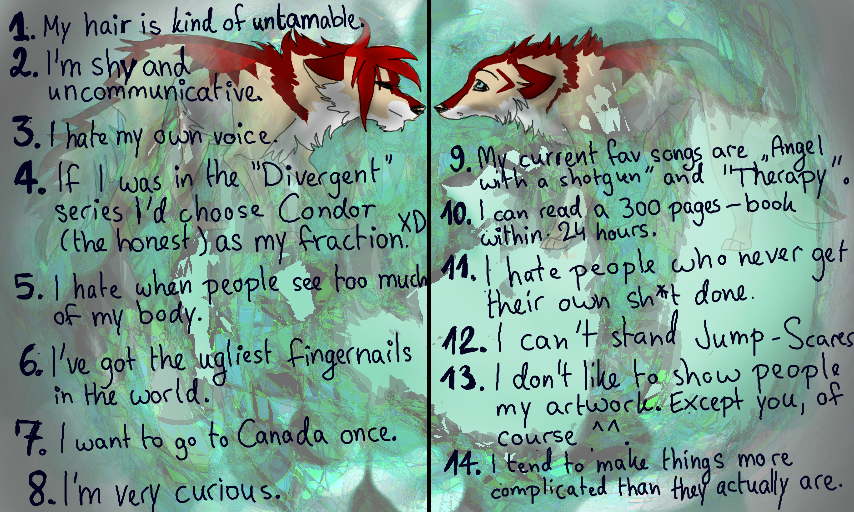 1. My hair is kind of untamable.
2. I'm shy and
uncommunicative.
3. I hate my own voice.
4. If I was in the "Divergent"
series I'd choose Condor
(the honest) as my fraction. XD
5. I hate when people see too much
of my body.
6. I've got the ugliest fingernails
in the world.
7. I want to go to Canada once.
8. I'm very curious.
9. My current fav songs are „Angel
with a shotgun" and "Therapy".
10. I can read a 300 pages-book
within 24 hours.
11. I hate people who never get
their own sh*t done.
12. I can't stand Jump-Scares
13. I don't like to show people
my artwork. Except you, of
course ^^.
14. I tend to make things more
complicated than they actually are.